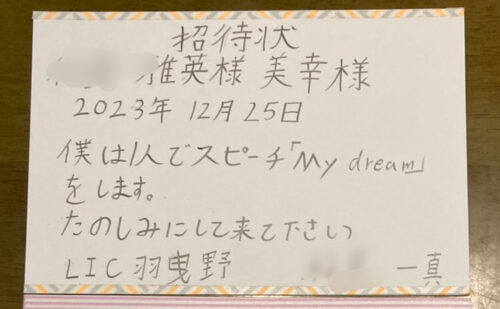 招待状
雅英様 美幸様
2023年 12月25日
僕は1人でスピーチ「My dream」
をします。
たのしみにして来て下さい
LIC羽曳野 一真